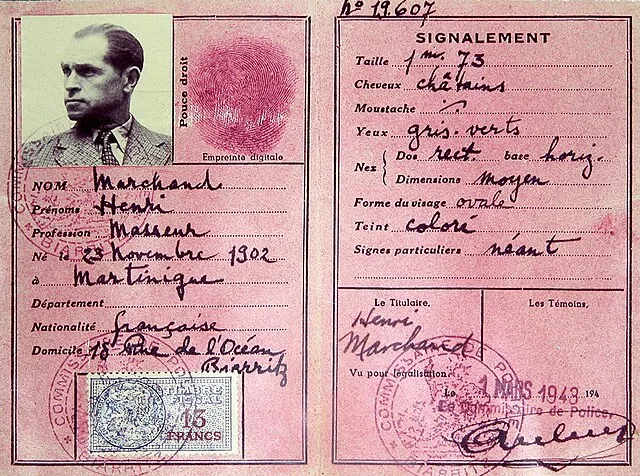 Pouce droit
Empreinte digitale
NOM Marchand
Prénoms Henri
Profession Masseur
Né le 23 Novembre 1902
à Martinique
Département
Nationalité française
Domicile 18 Rue de l'Océan
Biarritz
TIMBRE
FISCAL
13
FRANCS
COMMISSARIAT DE POLICE
BIARRITZ
No 19.607
SIGNALEMENT
Taille 1m. 73
Cheveux châtains
Moustache
Yeux gris-verts
Nez { Dos rect. base horiz.
Dimensions moyen
Forme du visage ovale
Teint coloré
Signes particuliers néant
Le Titulaire, Les Témoins,
Henri
Marchand
Vu pour légalisation
Le 1 MARS 1943 194
Le Commissaire de Police,